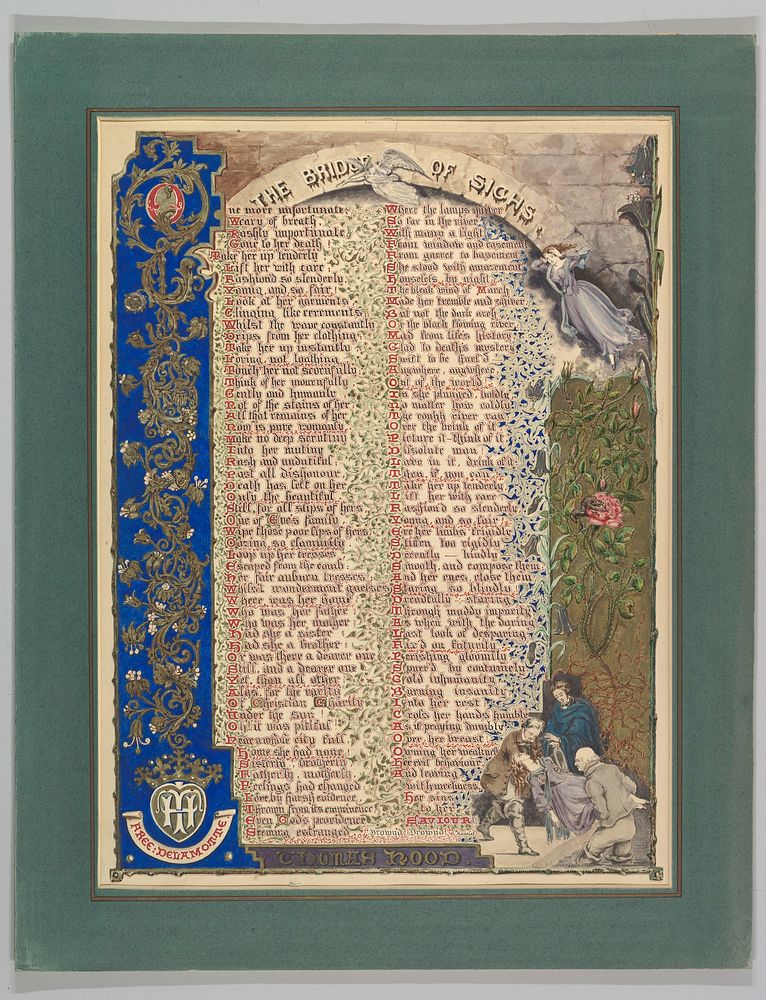 THE BRIDGE OF SIGHS.
One more unfortunate,
Weary of breath,
Rashly importunate,
Gone to her death.
Take her up tenderly
Lift her with care,
Fashion'd so slenderly,
Young, and so fair,
Look at her garments
Clinging like cerements,
Whilst the wave constantly
Drips from her clothing
Take her up instantly
Loving, not loathing.
Touch her not scornfully
Think of her mournfully
Gently and humanly
Not of the stains of her
All that remains of her
Now is pure womanly.
Make no deep scrutiny
Into her mutiny
Rash and undutiful
Past all dishonour,
Death has left on her
Only the beautiful
Still, for all slips of hers
One of Eve's family
Wipe those poor lips of hers
Oozing, so clammily
Loop up her tresses
Escaped from the comb
Her fair auburn tresses
Whilst wonderment guesses
Where was her home
Who was her father
Who was her mother
Had she a sister
Had she a brother
Or was there a dearer one
Still, and a dearer one
Yet, than all other
Alas, for the rarity
Of Christian Charity
Under the sun
O, it was pitiful
Near a whole city full
Home she had none
Sisterly, brotherly
Fatherly, motherly
Feelings had changed
Love, by harsh evidence
Thrown from its eminence
Even God's providence
Seeming estranged
Where the lamps quiver
So far in the river
With many a light
From window and casement
From garret to basement
She stood with amazement
Houseless, by night
The bleak wind of March
Made her tremble and shiver
But not the dark arch
Or the black flowing river
Mad from life's history
Glad to death's mystery
Swift to be hurl'd
Anywhere, anywhere
Out of the world
In she plunged, boldly
No matter how coldly
The rough river ran
Over the brink of it
Picture it - think of it
Dissolute man
Lave in it, drink of it
Then, if you can
Take her up tenderly
Lift her with care
Fashion'd so slenderly
Young, and so fair
Ere her limbs frigidly
Stiffen too rigidly
Decently — kindly
Smooth, and compose them
And her eyes, close them
Staring so blindly
Dreadfully staring
Through muddy impurity
As when with the daring
Last look of despairing
Fix'd on futurity
Perishing gloomily
Spurr'd by contumely
Cold inhumanity
Burning insanity
Into her rest
Cross her hands humbly
As if praying dumbly
Over her breast
Owning her weakness
Her evil behaviour
And leaving
with meekness
Her sins
to her
SAVIOUR
Drown'd Drown'd
THOMAS HOOD
FREE: DELAMOTTE